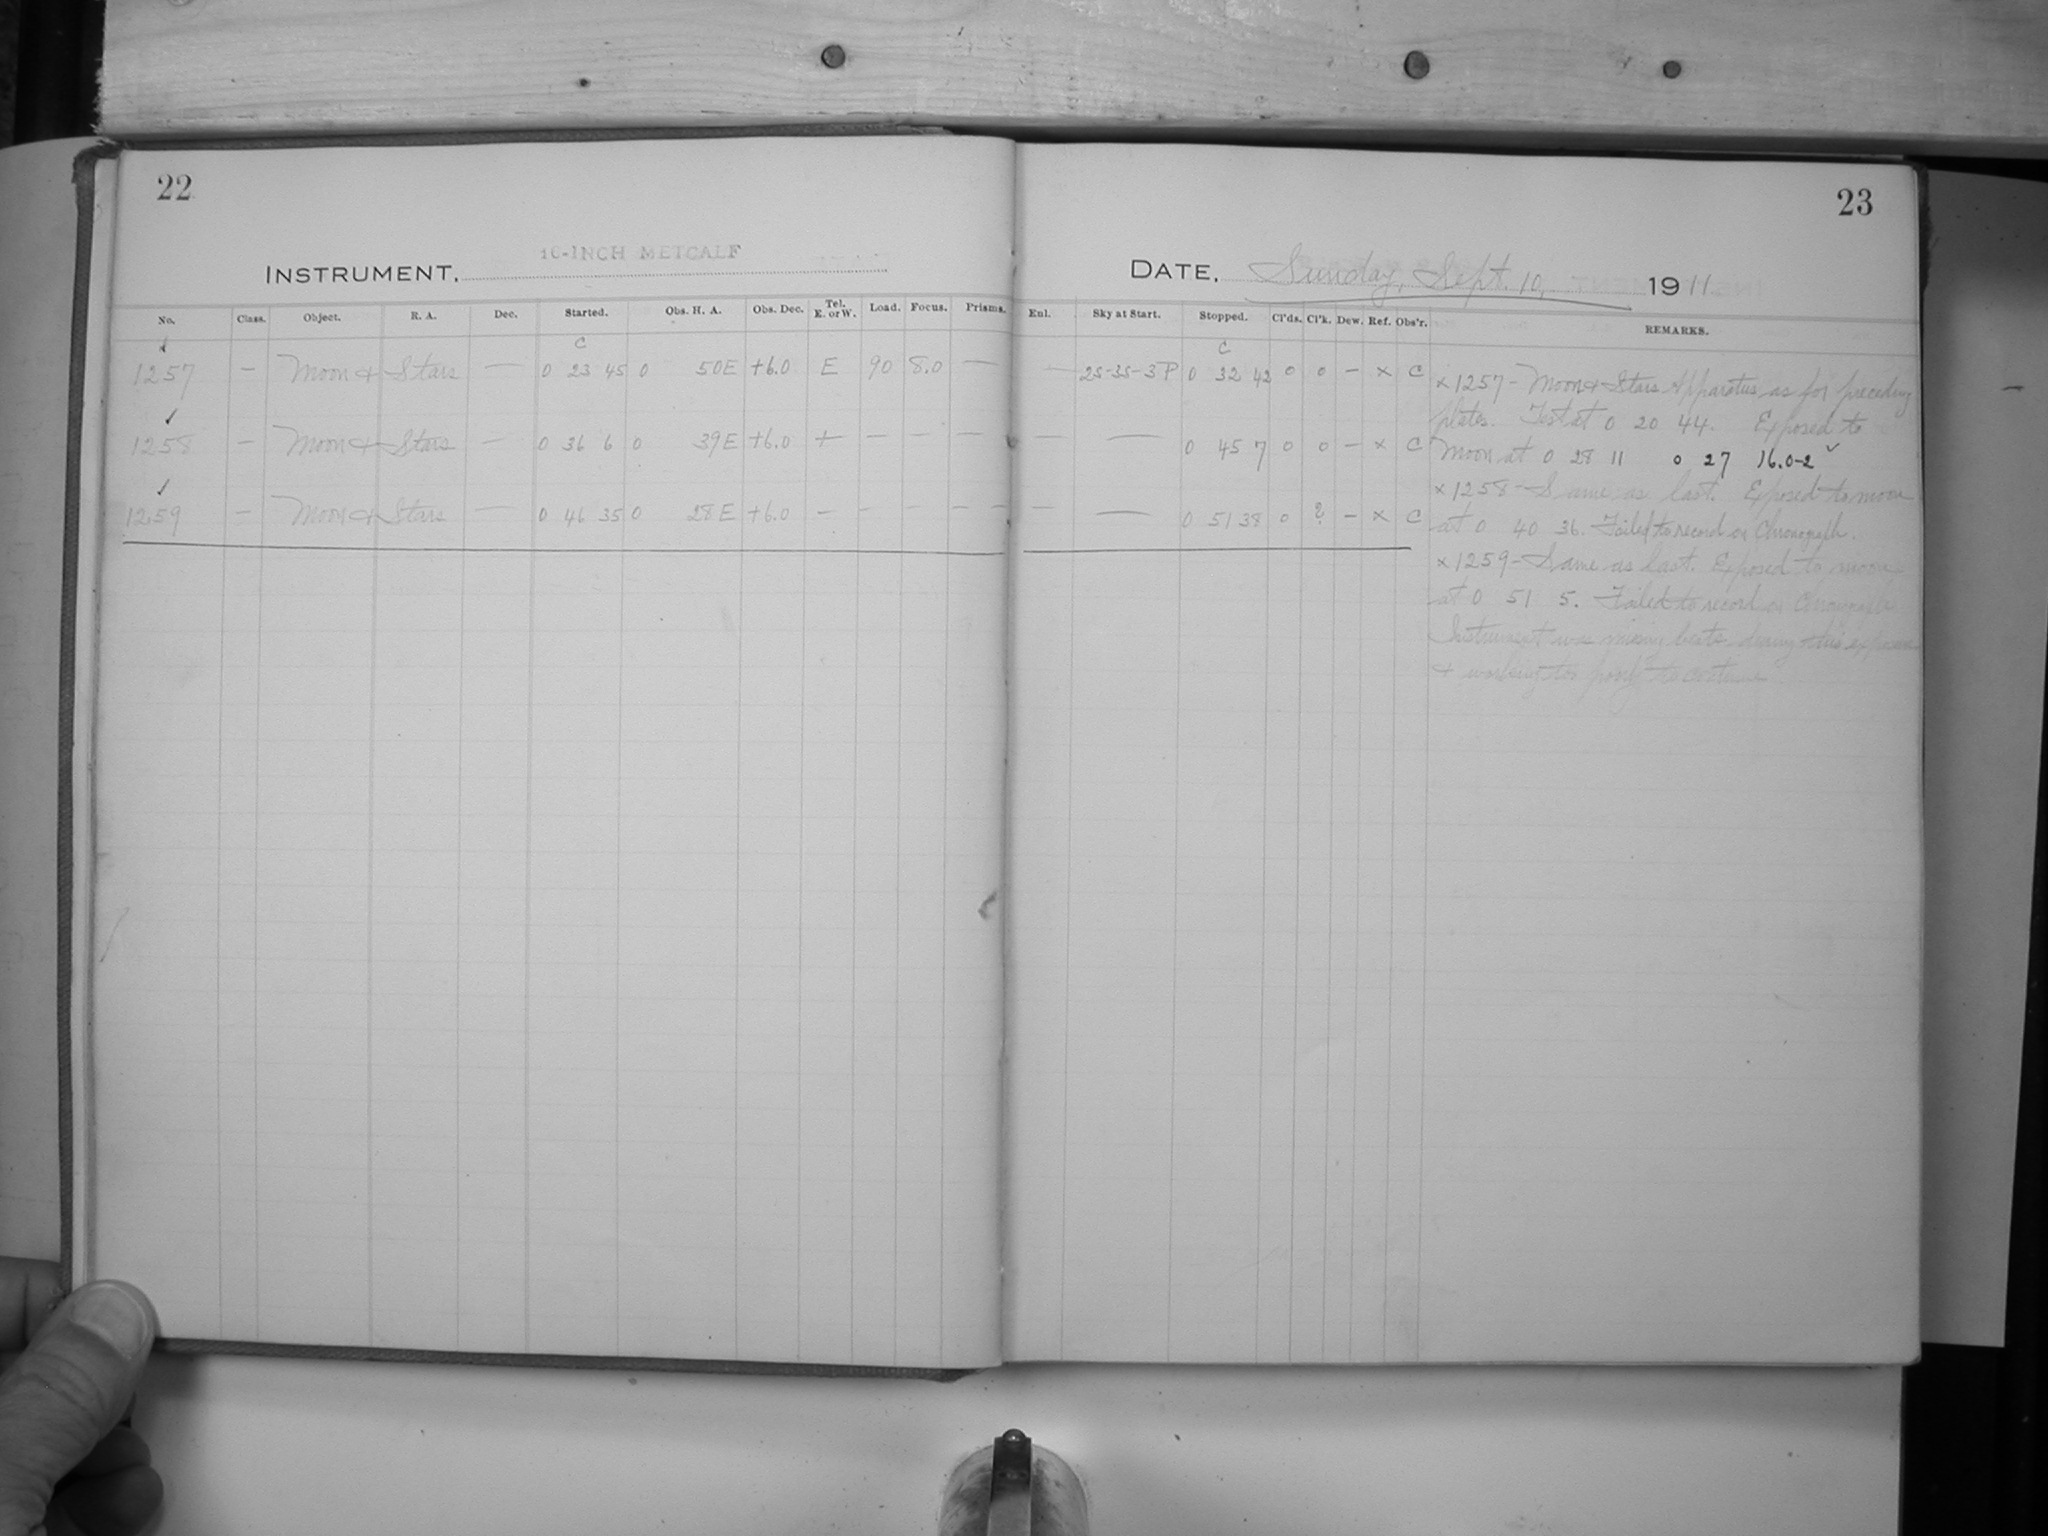 22
23
16-INCH METCALF
INSTRUMENT,
DATE, Sunday, Sept. 10, 1911
No. Class. Object. R. A. Dec. Started. Obs. H. A. Obs. Dec. Tel. E. or W. Load. Focus. Prisms. Eul. Sky at Start. Stopped. Cl'ds. Cl'k. Dew. Ref. Obs'r. REMARKS.
C C
1257 — Moon & Stars — 0 23 45 0 50E +6.0 E 90 8.0 — — 25-35-3P 0 32 42 0 0 — x C
1258 — Moon & Stars — 0 36 6 0 39E +6.0 + — — — — — 0 45 7 0 0 — x C
1259 — Moon & Stars — 0 46 35 0 28E +6.0 — — — — — — 0 51 38 0 ? — x C
x 1257 - Moon & Stars Apparatus as for preceding
plates. Test at 0 20 44. Exposed to
Moon at 0 28 11 0 27 16.0-2
x 1258 - Same as last. Exposed to moon
at 0 40 36. Failed to record on Chronograph.
x 1259 - Same as last. Exposed to moon
at 0 51 5. Failed to record on Chronograph
Instrument was missing beats during this exposure
& working too poorly to continue.